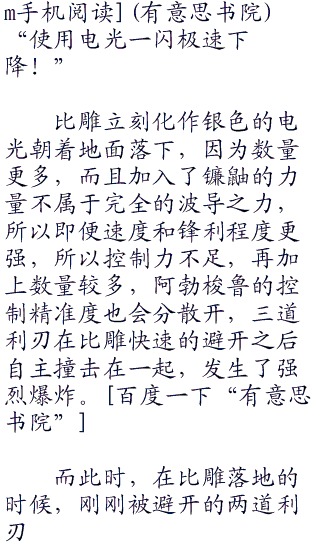 m手机阅读] (有意思书院)
“使用电光一闪极速下
降！”
比雕立刻化作银色的电
光朝着地面落下，因为数量
更多，而且加入了镰鼬的力
量不属于完全的波导之力，
所以即便速度和锋利程度更
强，所以控制力不足，再加
上数量较多，阿勃梭鲁的控
制精准度也会分散开，三道
利刃在比雕快速的避开之后
自主撞击在一起，发生了强
烈爆炸。[百度一下“有意思
书院”]
而此时，在比雕落地的
时候，刚刚被避开的两道利
刃